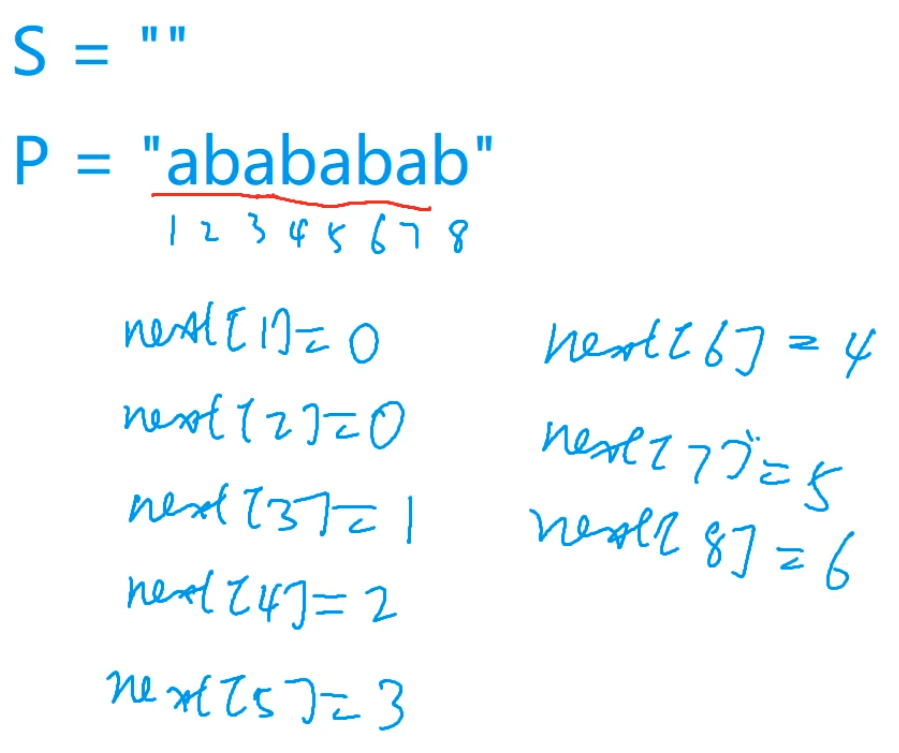 S = ""
P = "abababab"
1 2 3 4 5 6 7 8
next[1]=0
next[2]=0
next[3]=1
next[4]=2
next[5]=3
next[6]=4
next[7]=5
next[8]=6